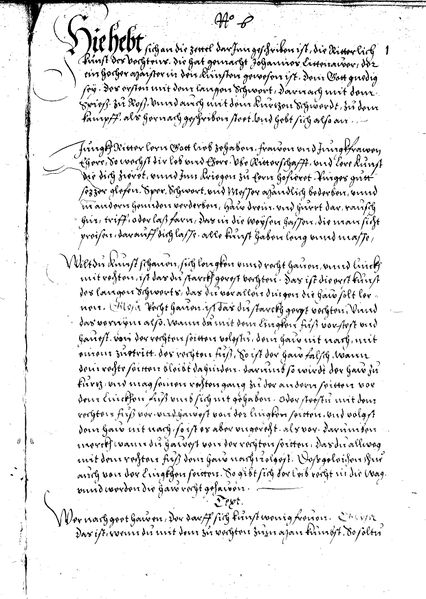 No 6
Hie hebt sich an die zettel darinn geschriben ist, die Ritterlich 1
kunst des vechtens, die hat gemacht Johannes Liechtenawer, der
ein hocher Maister in den kunsten gewesen ist, dem Gott gnedig
sey, des ersten mit dem langen Schwert, darnach mit dem
Spies zu Ross, vnnd auch mit dem kurtzen Schwerdt, zu dem
kampff, als hernach geschriben steet vnd hebt sich also an
Jungkh Ritter lern Gott lieb zehaben, frawen vnd Jungkfrawen
Eeer, So wechst dir lob vnd Eere, vbe Ritterschafft, vnd lern kunst
die dich ziert, vnnd inn kriegen zu Eern hofieret Ringes guet
fesser, glefen, Sper, Schwert, vnd Messer mandlich bederben, vnnd
in andern henden verderben, Haw drein, vnd huert dar, rausch
hin, triff, oder lass farn, das in die weysen hassen, die man sicht
preisen, darauff dich lasse, alle kunst haben leng vnnd masse,
Wildu kunst schawen, sich lengken vnnd recht hauen, vnnd linckh
mit rechten, ist das du starckh gerest vechten. Das ist die erst kunst
des langen Schwerts, das du vor allen dingen die haw solt ler=
nen. Glosa Recht hauen, ist das du starckh gerst vechten, vnnd
das vernym also, Wann du mit dem lingken fuess vor steest vnd
hauest, von der rechten seitten, volgstu, dem haw nit nach, mit
einem zutritt, des rechten fuess, So ist der haw falsch, wann
dein rechte seitten bleibt dahinden, darumb so wirdt der haw zu
kurtz vnd mag seinen rechten gang zu der andern seitten vor
dem linckhen fuess vnd sich nit gehaben. Oder steestu mit dem
rechten fuess vor vnd hauest von der lingken seitten, vnd volgst
dem haw nit nach, so ist es aber vngerecht, als vor. Darumben
merckh wann du hauest von der rechten seitten, das du allweg
mit dem rechten fuess dem haw nach volgest. Desgeleichen thue
auch von der Lingkhen seitten. So gibt sich der leib recht in die Wag,
vnnd werden die haw recht gehawen.
Text.
Wer nach geet hawen, der darff sich kunst wenig frewen. Glosa
das ist, wenn du mit dem zu vechten zum man kumbst, So soltu